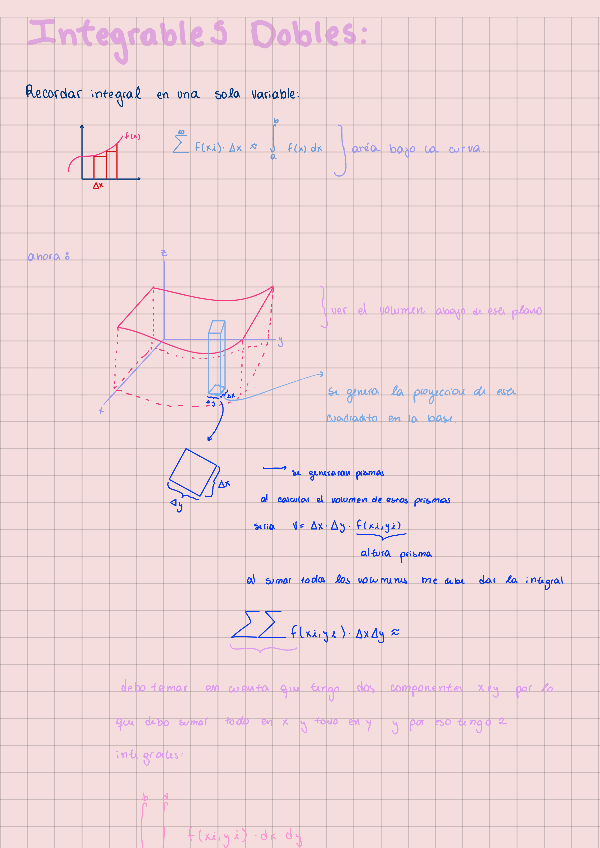 Integrables Dobles:
Recordar integral en una sola variable:
f(x)
Δx
∞
∑ f(xi)·Δx ≈ ∫ f(x) dx } aréa bajo la curva.
b
a
ahora:
z
y
x
} ver el volumen abajo de ese plano
se genera la proyeccion de ese
cuadradito en la base.
Δy Δx
Δx
Δy
→ se generaran prismas
al calcular el volumen de estos prismas
seria V = Δx·Δy·f(xi,yi)
altura prisma
al sumar todos los volumenes me debe dar la integral
∑∑ f(xi,yi)·ΔxΔy ≈
debo tomar en cuenta que tengo dos componentes x e y por lo
que debo sumar todo en x y todo en y y por eso tengo 2
integrales:
∫∫ f(xi,yi)·dx dy